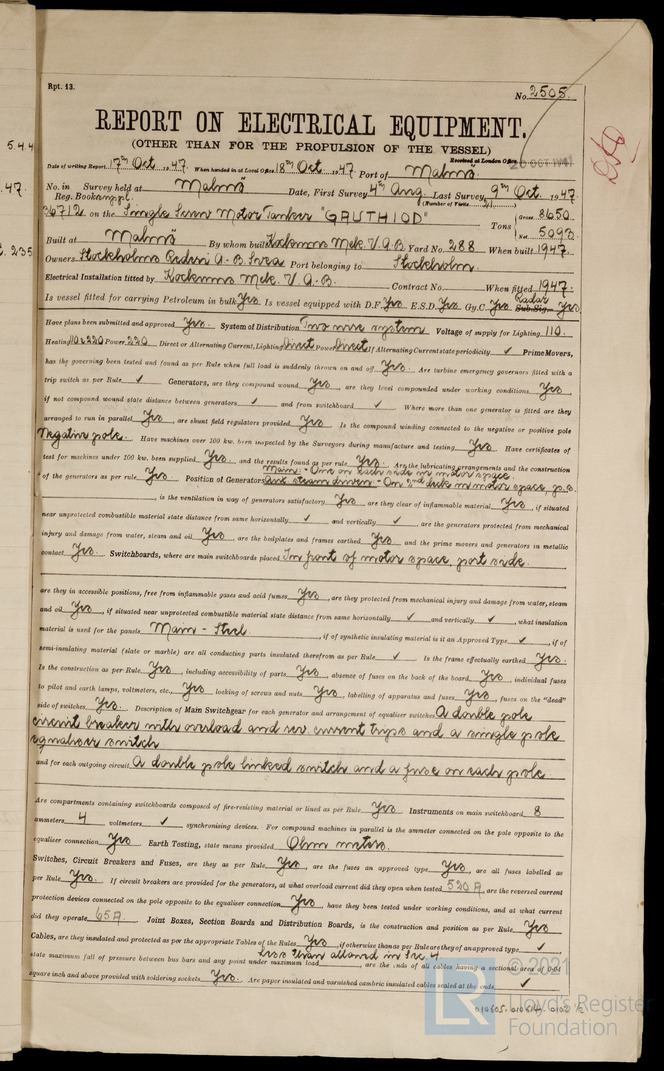 Rpt. 13.
No. 2505.
REPORT ON ELECTRICAL EQUIPMENT.
(OTHER THAN FOR THE PROPULSION OF THE VESSEL)
Received at London Office 20 OCT 1947
Date of writing Report 17th Oct 1947. When handed in at Local Office 18th Oct 1947 Port of Malmö.
No. in Survey held at Malmö Date, First Survey 4th Aug. Last Survey 9th Oct. 1947
Reg. Book. (Number of Visits
36712. on the Single Screw Motor Tanker "GAUTHIOD" Tons Gross 8650 Net 5093
Built at Malmö By whom built Kockums Mek. V. A-B Yard No. 288 When built 1947.
Owners Stockholms Rederi A-B Svea Port belonging to Stockholm.
Electrical Installation fitted by Kockums Mek. V. A-B. Contract No. When fitted 1947.
Is vessel fitted for carrying Petroleum in bulk Yes Is vessel equipped with D.F. Yes E.S.D. Yes Gy.C. Yes Radar Sub.Sig. Yes
Have plans been submitted and approved Yes. System of Distribution Two wire system Voltage of supply for Lighting 110.
Heating 110 & 220 Power 220 Direct or Alternating Current, Lighting Direct Power Direct If Alternating Current state periodicity ✓ Prime Movers,
has the governing been tested and found as per Rule when full load is suddenly thrown on and off Yes. Are turbine emergency governors fitted with a
trip switch as per Rule ✓ Generators, are they compound wound Yes, are they level compounded under working conditions Yes,
if not compound wound state distance between generators ✓ and from switchboard ✓ Where more than one generator is fitted are they
arranged to run in parallel Yes, are shunt field regulators provided Yes. Is the compound winding connected to the negative or positive pole
Negative pole. Have machines over 100 kw. been inspected by the Surveyors during manufacture and testing Yes Have certificates of
test for machines under 100 kw. been supplied Yes and the results found as per rule Yes. Are the lubricating arrangements and the construction
Main:- One on each side in motor space.
of the generators as per rule Yes Position of Generators Aux. steam driven:- On 2nd deck in motor space, p.s.
, is the ventilation in way of generators satisfactory Yes, are they clear of inflammable material Yes, if situated
near unprotected combustible material state distance from same horizontally ✓ and vertically ✓, are the generators protected from mechanical
injury and damage from water, steam and oil Yes, are the bedplates and frames earthed Yes and the prime movers and generators in metallic
contact Yes. Switchboards, where are main switchboards placed In front of motor space, port side.
are they in accessible positions, free from inflammable gases and acid fumes Yes, are they protected from mechanical injury and damage from water, steam
and oil Yes, if situated near unprotected combustible material state distance from same horizontally ✓ and vertically ✓, what insulation
material is used for the panels Main - Steel, if of synthetic insulating material is it an Approved Type ✓, if of
semi-insulating material (slate or marble) are all conducting parts insulated therefrom as per Rule ✓ Is the frame effectually earthed Yes.
Is the construction as per Rule Yes, including accessibility of parts Yes, absence of fuses on the back of the board Yes, individual fuses
to pilot and earth lamps, voltmeters, etc., Yes locking of screws and nuts Yes, labelling of apparatus and fuses Yes, fuses on the "dead"
side of switches Yes. Description of Main Switchgear for each generator and arrangement of equaliser switches A double pole
circuit breaker with overload and rev. current trips and a single pole
equaliser switch
and for each outgoing circuit A double pole linked switch and a fuse on each pole
Are compartments containing switchboards composed of fire-resisting material or lined as per Rule Yes Instruments on main switchboard 8
ammeters 4 voltmeters ✓ synchronising devices. For compound machines in parallel is the ammeter connected on the pole opposite to the
equaliser connection Yes Earth Testing, state means provided Ohm meter.
Switches, Circuit Breakers and Fuses, are they as per Rule Yes, are the fuses an approved type Yes, are all fuses labelled as
per Rule Yes. If circuit breakers are provided for the generators, at what overload current did they open when tested 520A, are the reversed current
protection devices connected on the pole opposite to the equaliser connection Yes, have they been tested under working conditions, and at what current
did they operate 65A Joint Boxes, Section Boards and Distribution Boards, is the construction and position as per Rule Yes
Cables, are they insulated and protected as per the appropriate Tables of the Rules Yes, if otherwise than as per Rule are they of an approved type ✓
state maximum fall of pressure between bus bars and any point under maximum load Less than allowed in Sec. 4, are the ends of all cables having a sectional area of 0.04
square inch and above provided with soldering sockets Yes. Are paper insulated and varnished cambric insulated cables sealed at the ends ✓
© 2021
Lloyd's Register
Foundation
LR